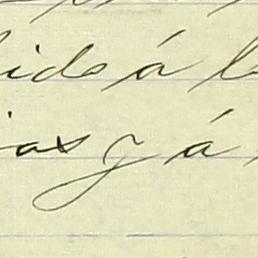 ido á l
ias y á